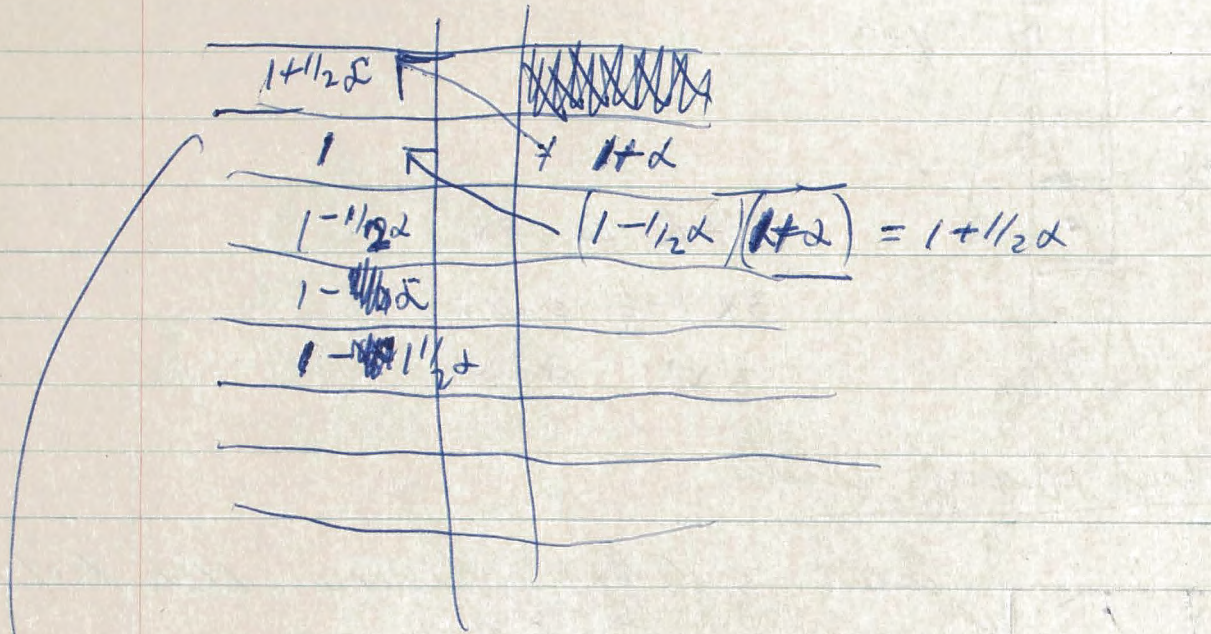 1+1/2α
1 1+α
1-1/2α (1-1/2α)(1+α) = 1+1/2α
1-α
1-1 1/2α